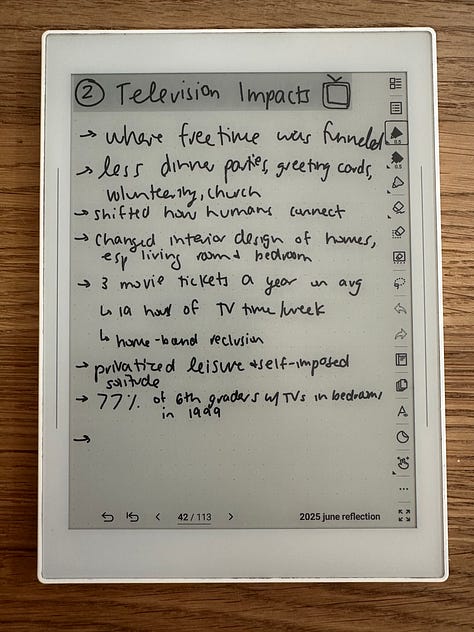 ② Television Impacts
→ where free time was funneled
→ less dinner parties, greeting cards,
volunteering, church
→ shifted how humans connect
→ changed interior design of homes,
esp living room & bedroom
→ 3 movie tickets a year on avg
↳ 19 hours of TV time/week
↳ home-band reclusion
→ privatized leisure & self-imposed
solitude
→ 77% of 6th graders w/TVs in bedrooms
in 1999
→
42 / 113
2025 june reflection